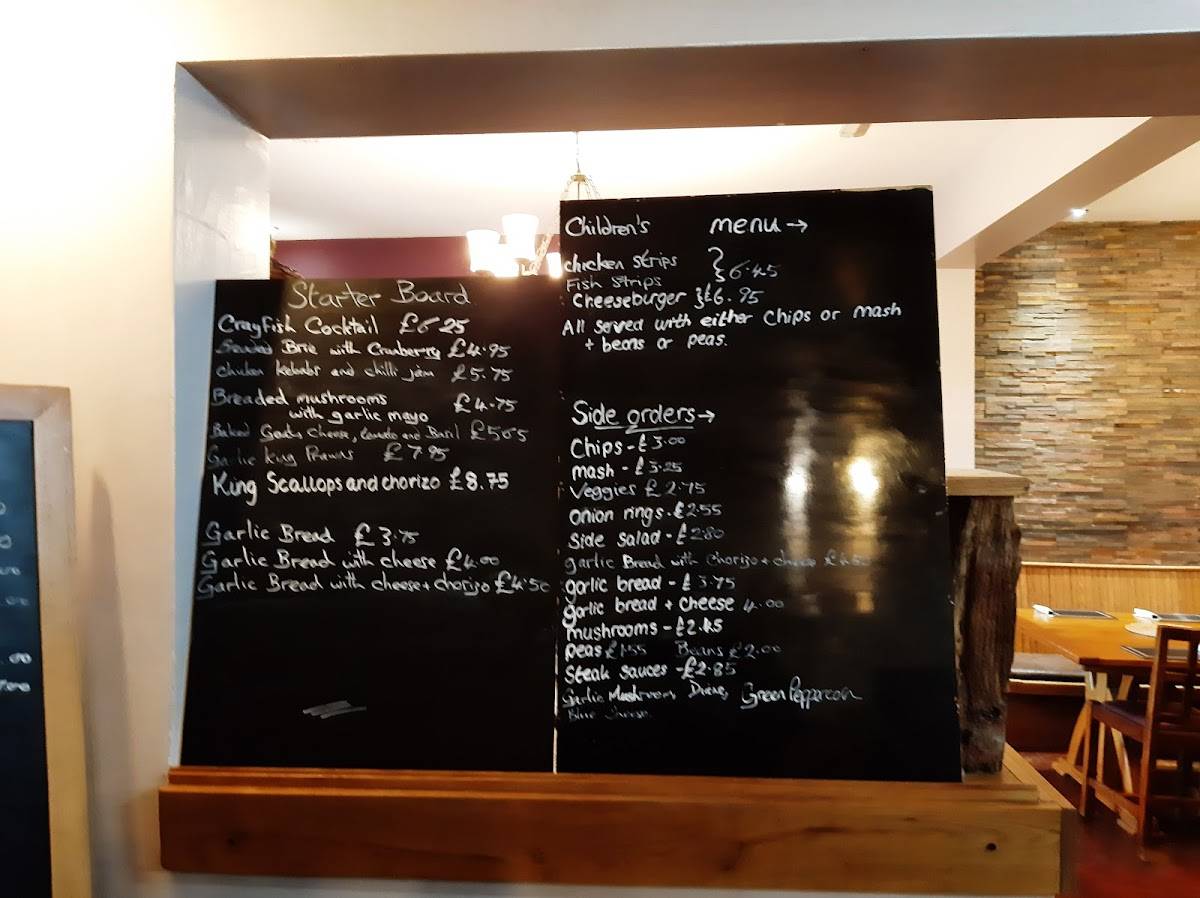 Starter Board
Crayfish Cocktail £6.25
Breaded Brie with Cranberry £4.95
chicken kebabs and chilli jam £5.75
Breaded mushrooms
with garlic mayo £4.75
Baked Goats Cheese, tomato and Basil £5.65
Garlic King Prawns £7.95
King Scallops and chorizo £8.75
Garlic Bread £3.75
Garlic Bread with cheese £4.00
Garlic Bread with cheese + chorizo £4.50
Children's menu →
chicken strips
Fish strips } £6.45
Cheeseburger } £6.95
All served with either Chips or mash
+ beans or peas.
Side orders →
Chips - £3.00
mash - £3.25
Veggies £2.75
onion rings - £2.55
Side salad - £2.80
garlic Bread with Chorizo + cheese £4.50
garlic bread - £3.75
garlic bread + cheese 4.00
mushrooms - £2.45
peas £1.55 Beans £2.00
Steak sauces - £2.85
Garlic Mushroom, Diane, Green Peppercorn
Blue Cheese